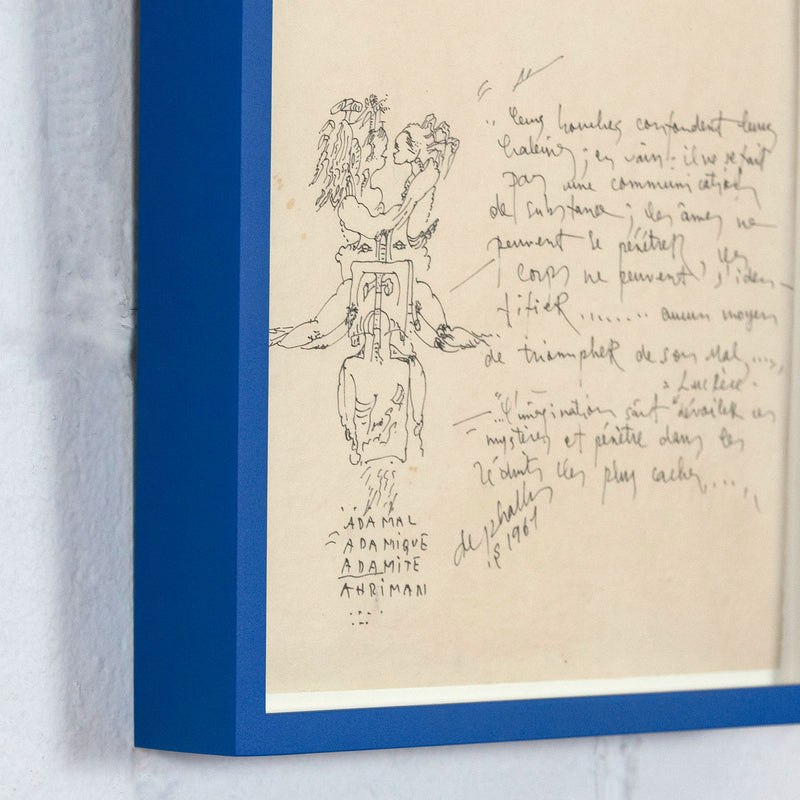 .. leurs bouches confondent leurs
haleines ; en vain : il ne se fait
pas une communication
de substance ; les âmes ne
peuvent se pénétrer, les
corps ne peuvent s'iden-
tifier........ aucun moyen
de triompher de son mal,...,
Lucrèce.
"...L'imagination sait dévoiler ces
mystères et pénètre dans les
réduits les plus cachés,...,
de
1961
ADAMAL
ADAMIQUE
ADAMITE
AHRIMAN